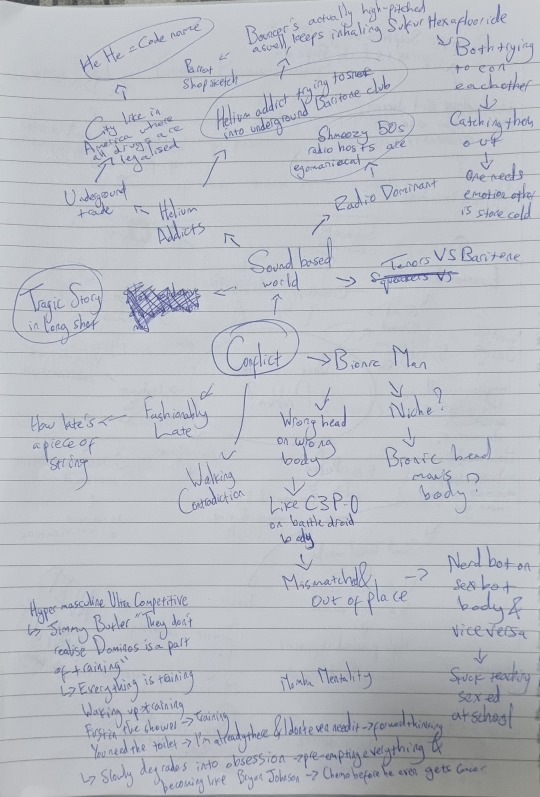 He He = Code name
Bouncer's actually high-pitched
aswell, keeps inhaling Sulfur Hexafluoride
Parrot
Shop sketch
Both trying
to con
eachother
Helium addict trying to
into underground Baritone club
City like in
America where
all drugs are
legalised
Shmoozy 50s
radio hosts are
egomaniacal
Catching them
out
One needs
emotion other
is stone cold
Underground
trade
Helium
Addicts
Radio Dominant
Sound based
world
Tenors VS Baritone
Squeakers VS
Tragic Story
in long shot
Conflict
Bionic Man
Fashionably
Late
How late's
a piece of
string
Walking
Contradiction
Wrong head
on wrong
body
Niche?
Bionic head
man's
body?
Like C3P-O
on battle droid
body
Mismatched &
out of place
Nerd bot on
sexbot
body &
vice versa
Stuck teaching
sex ed
at school
Hyper masculine Ultra Competitive
Jimmy Butler "They don't
realise Dominos is a part
of training"
Everything is training
Mamba Mentality
Waking up training
First in the shower training
You need the toilet I'm already there & I don't even need it forward thinking
Slowly degrades into obsession pre-empting everything &
becoming like Bryan Johnson Chemo before he even gets Cancer